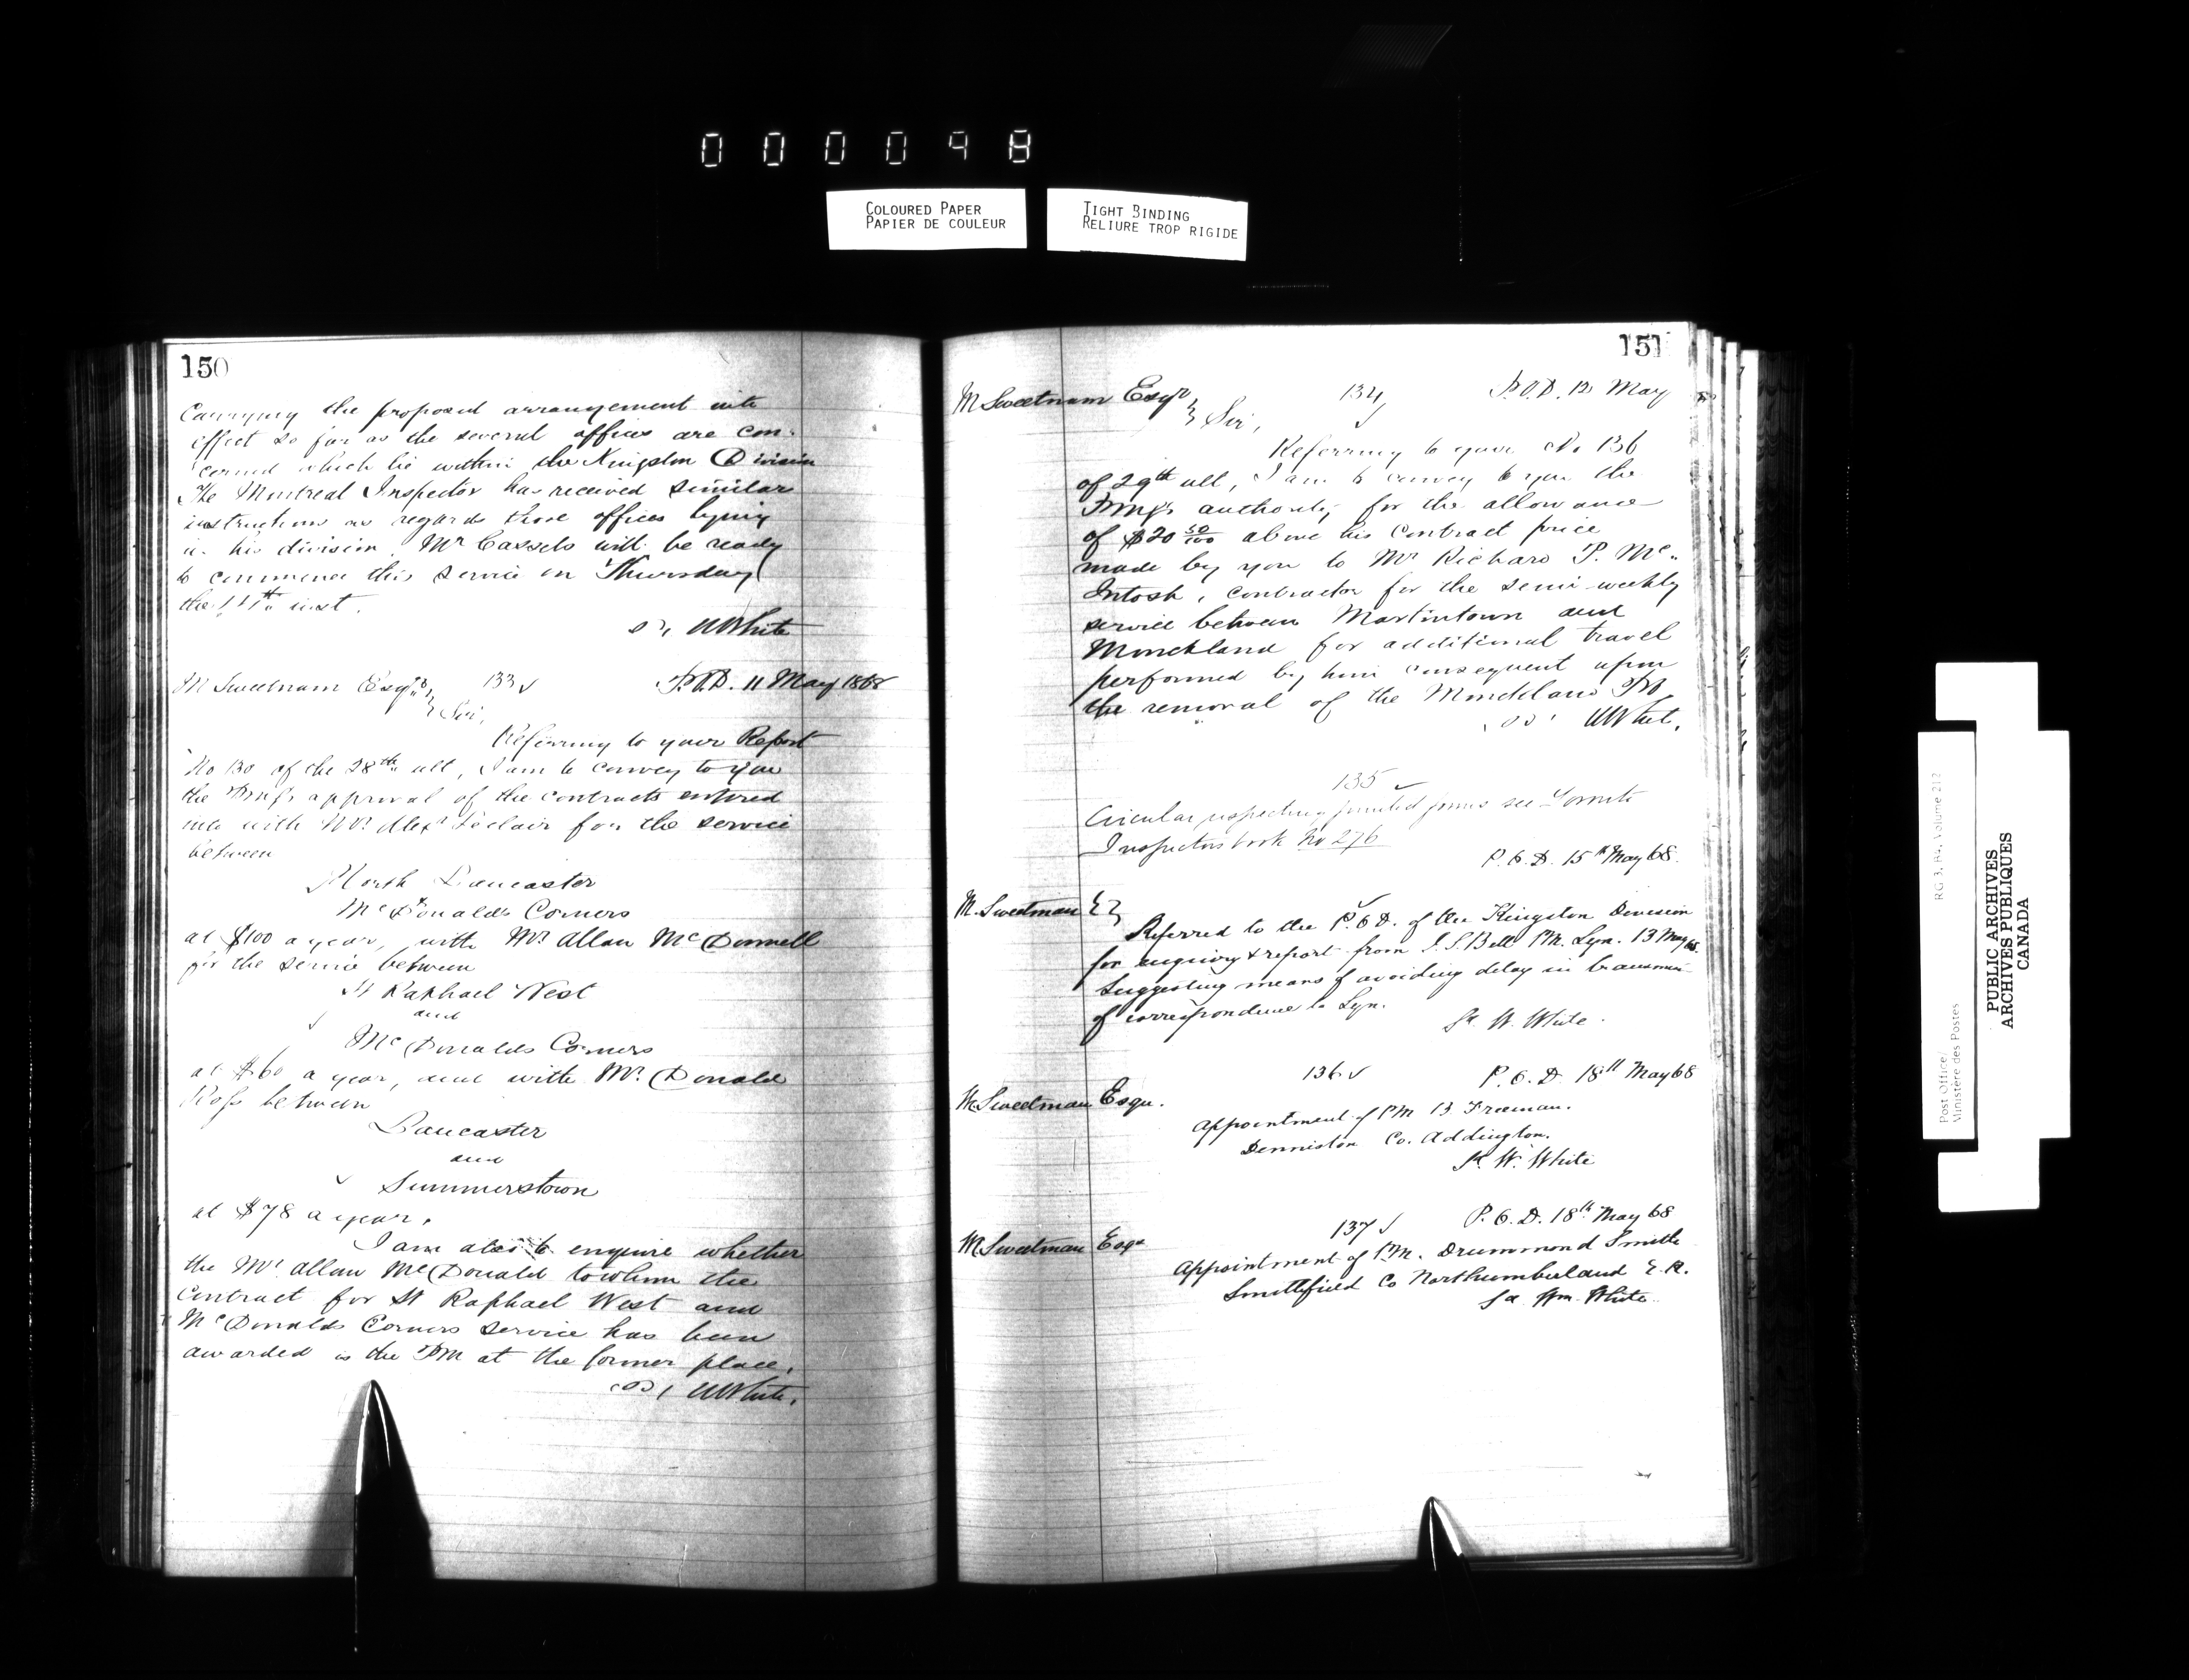 000098
COLOURED PAPER
PAPIER DE COULEUR
TIGHT BINDING
RELIURE TROP RIGIDE
150
Carrying the proposed arrangement into
effect so far as the several offices are con-
cerned which lie within the Kingston Division
The Montreal Inspector has received similar
instructions as regards those offices lying
in his division. Mr Cassels will be ready
to commence this service on Thursday
the 14th inst.
WWhite
M Sweetnam Esqre 133 P.O.D. 11 May 1868
Sir,
Referring to your Report
No 130 of the 28th ult, I am to convey to you
the PMG's approval of the contracts entered
into with Mr. Alexr Leclair for the service
between
North Lancaster
McDonalds Corners
at $100 a year, with Mr Allan McDonnell
for the service between
St Raphael West
and
McDonalds Corners
at $60 a year, and with Mr. Donald
Ross between
Lancaster
and
Summerstown
at $78 a year.
I am also to enquire whether
the Mr Allan McDonald to whom the
Contract for St Raphael West and
McDonalds Corners service has been
awarded is the PM at the former place.
WWhite.
151
M Sweetnam Esqr 134 P.O.D. 12 May
Sir,
Referring to your No 136
of 29th ult, I am to convey to you the
PMG's authority for the allowance
of $20 50/100 above his contract price
made by you to Mr Richard P. Mc-
Intosh, contractor for the semi-weekly
service between Martintown and
Monckland for additional travel
performed by him consequent upon
the removal of the Monckland PO.
WWhite.
135
Circular respecting printed forms see Toronto
Inspectors book No 276
P.O.D. 15th May 68.
M. Sweetman
Referred to the P.O.D. of the Kingston Division
for enquiry & report from J. S. Bell PM. Lyn. 13 May 68.
Suggesting means of avoiding delay in
of correspondence to Lyn.
W. White.
136 P.O.D. 18th May 68
M Sweetman Esqu.
Appointment of PM B Freeman.
Denniston Co. Addington.
W. White
137 P.O.D. 18th May 68
M Sweetman Esqr
Appointment of PM. Drummond Smith
Smithfield Co Northumberland E.R.
Wm. White
Post Office/
Ministère des Postes
RG 3, B4, Volume 212
PUBLIC ARCHIVES
ARCHIVES PUBLIQUES
CANADA